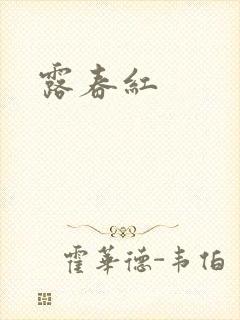 露春红
霍華德-韦伯